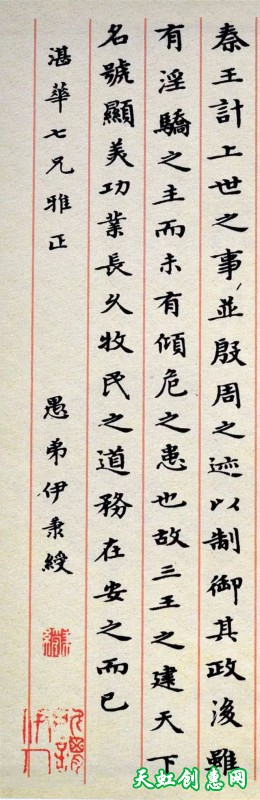 秦王計上世之事並殷周之迹以制御其政後雖
有淫驕之主而未有傾危之患也故三王之建天下
名號顯美功業長久牧民之道務在安之而已
湛華七兄雅正 愚弟伊秉綬
天虹创惠网